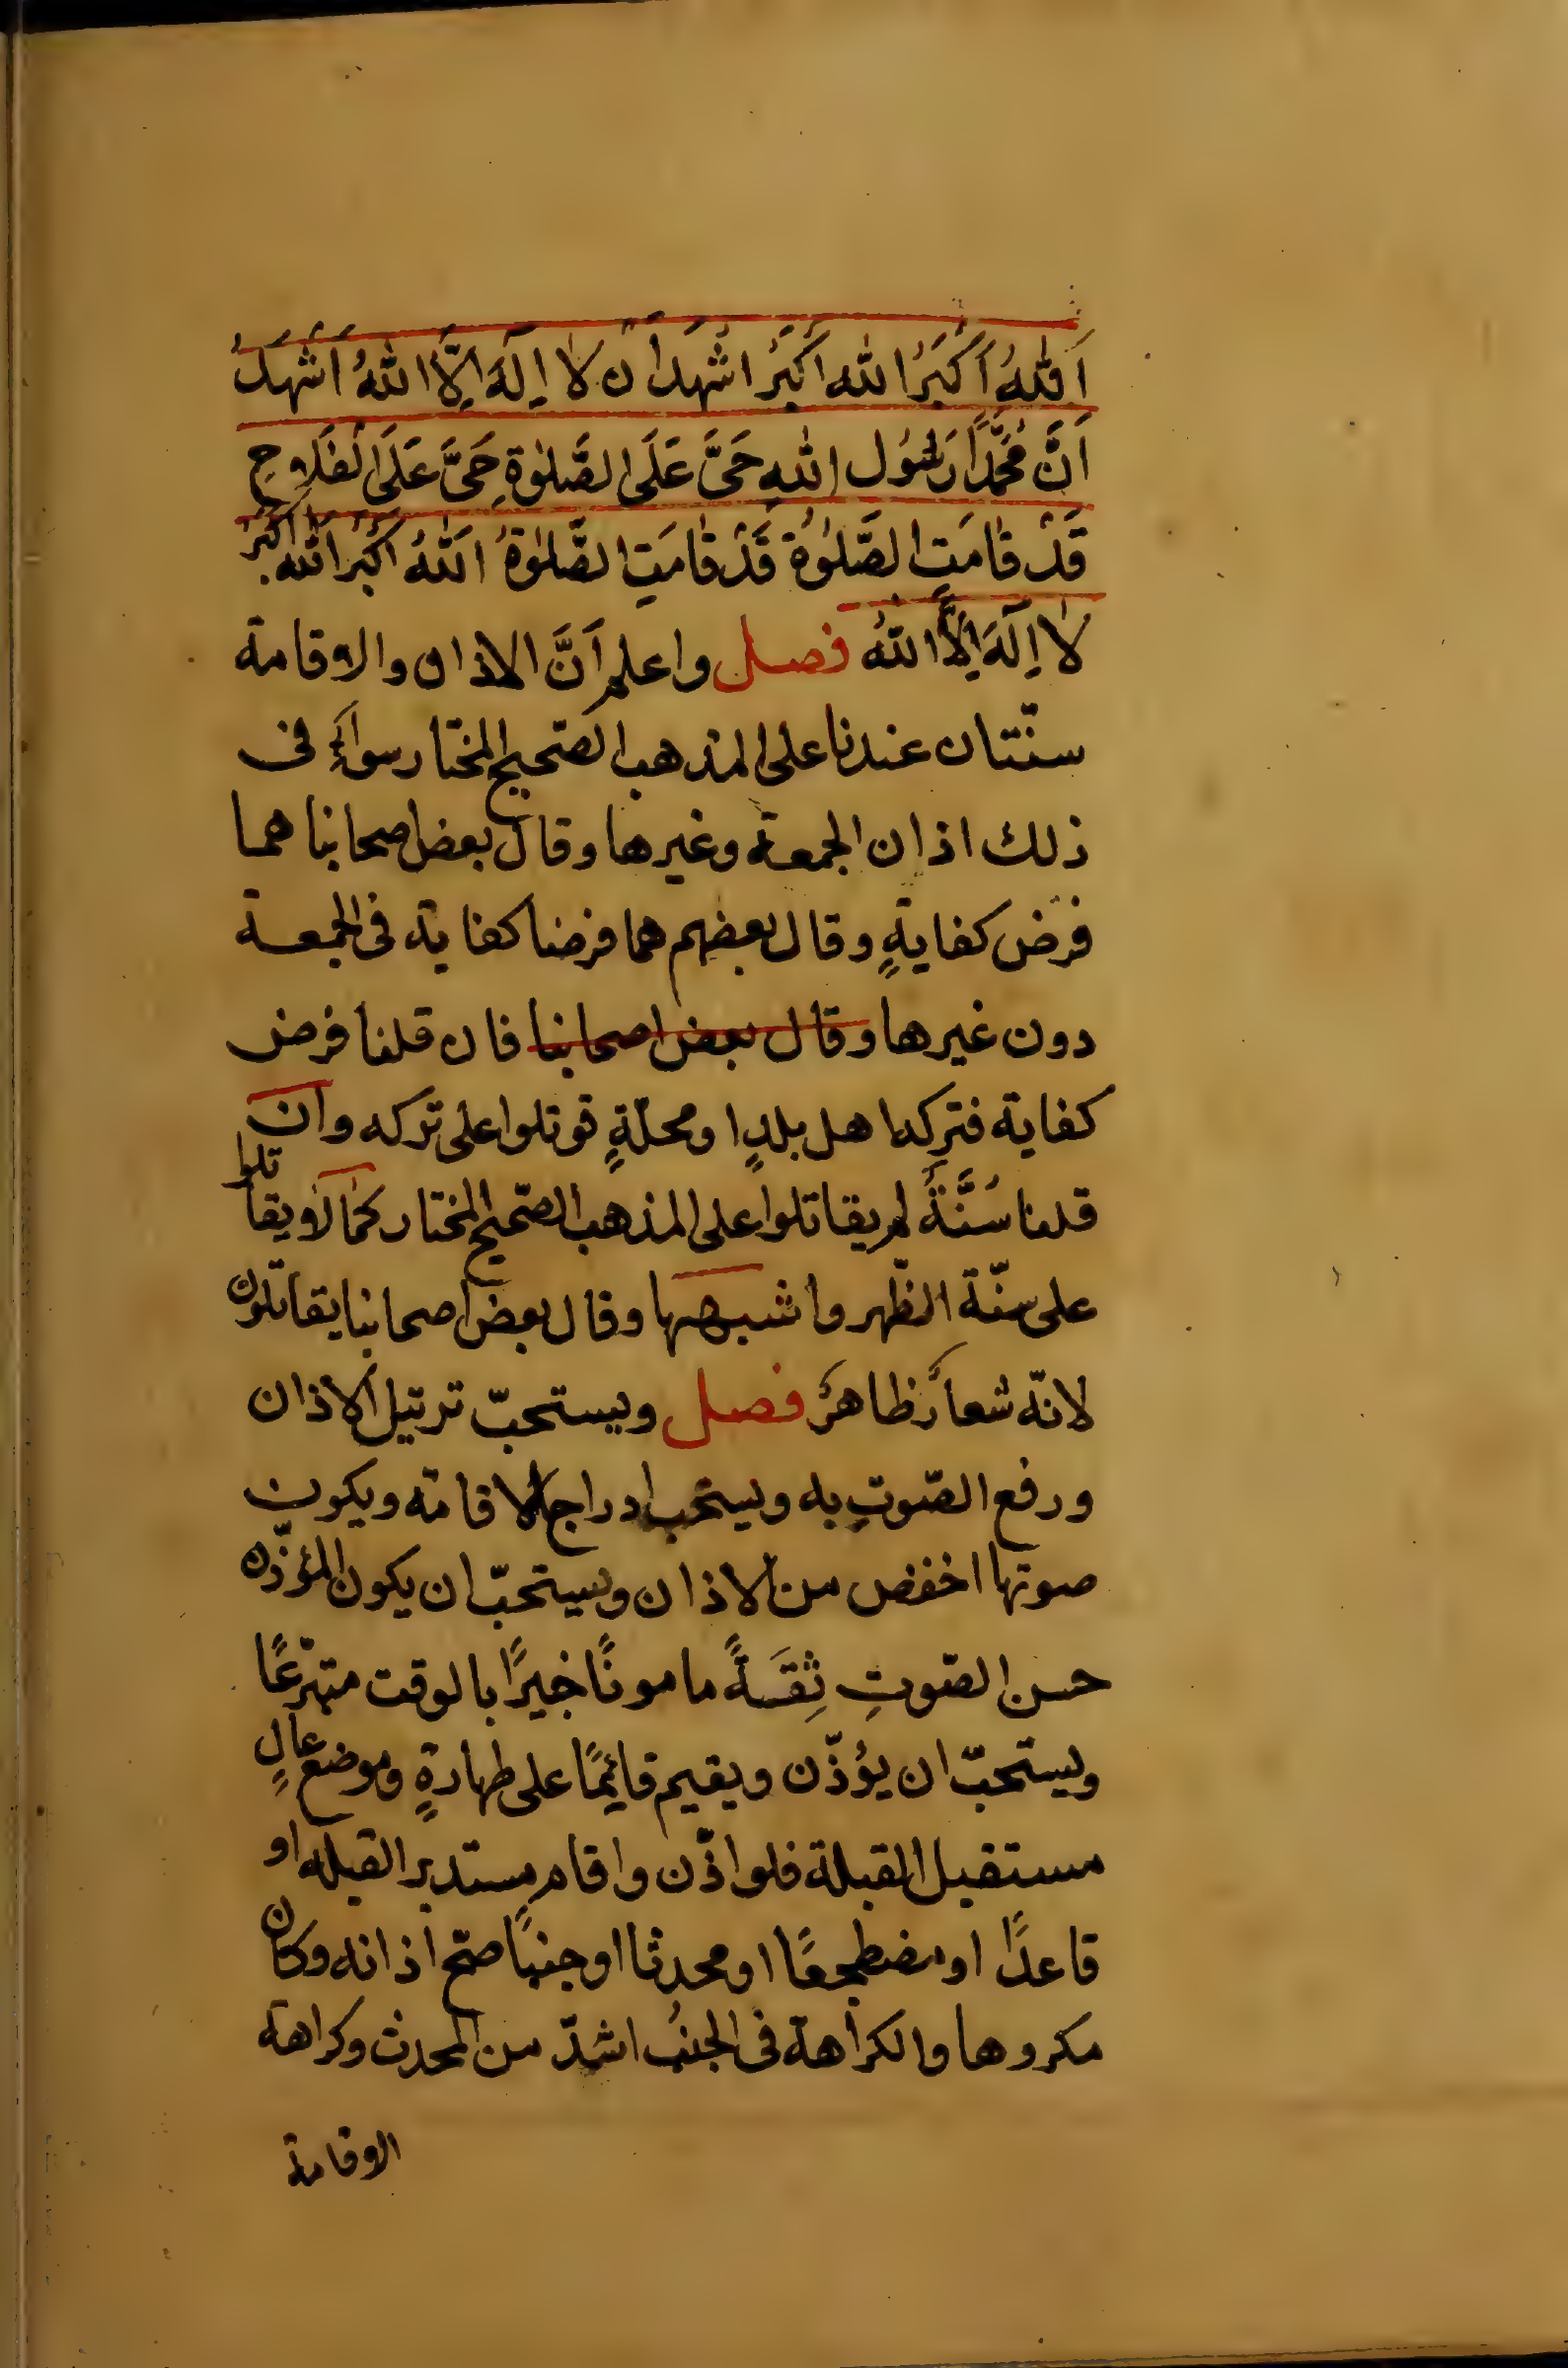 اَللّٰهُ اَكْبَرُ اللّٰه اَكْبَرُ اشْهَدُ اَن لا اِلٰهَ اِلَّا اللّٰهُ اَشْهَدُ
اَنَّ مُحَمَّدًا رَسُول اللّٰهِ حَىَّ عَلَى الصَّلٰوةِ حَىَّ عَلَى الْفَلَاحِ
قَدْ قٰامَتِ الصَّلٰوةُ قَدْ قٰامَتِ الصَّلٰوةُ اَللّٰهُ اَكْبَرُ اَللّٰه اَكْبَرُ
لا اِلٰهَ اِلَّا اللّٰهُ فصل واعلم اَنَّ الاذان والاقامة
سنّتان عندنا على المذهب الصّحيح المختار سواءٌ فى
ذلك اذان الجمعة وغيرها وقال بعض اصحابنا هما
فرض كفايةٍ وقال بعضهم هما فرضا كفاية فى الجمعة
دون غيرها وقال بعض اصحابنا فان قلنا فرض
كفاية فتركه اهل بلدٍ او محلّةٍ قوتلوا على تركه وان
قلنا سُنَّةٌ لم يقاتلوا على المذهب الصّحيح المختار كما لا يقاتلوا
على سنّة الظّهر واشبهها وقال بعض اصحابنا يقاتلون
لانّه شعارٌ ظاهرٌ فصل ويستحبّ ترتيل الاذان
ورفع الصّوتِ به ويستحب ادراج الاقامة ويكون
صوتها اخفض من الاذان ويستحبّ ان يكون المؤذّن
حسن الصّوتِ ثِقَةً مامونًا خبيرًا بالوقت متبرّعًا
ويستحبّ ان يؤذّن ويقيم قائمًا على طهارةٍ وموضع عالٍ
مستقبل القبلة فلو اذّن واقام مستدبر القبلة او
قاعدًا او مضطجعًا او محدثا او جنبًا صحّ اذانه وكان
مكروها والكراهة فى الجنُب اشدّ من المحدث وكراهة
الاقامة